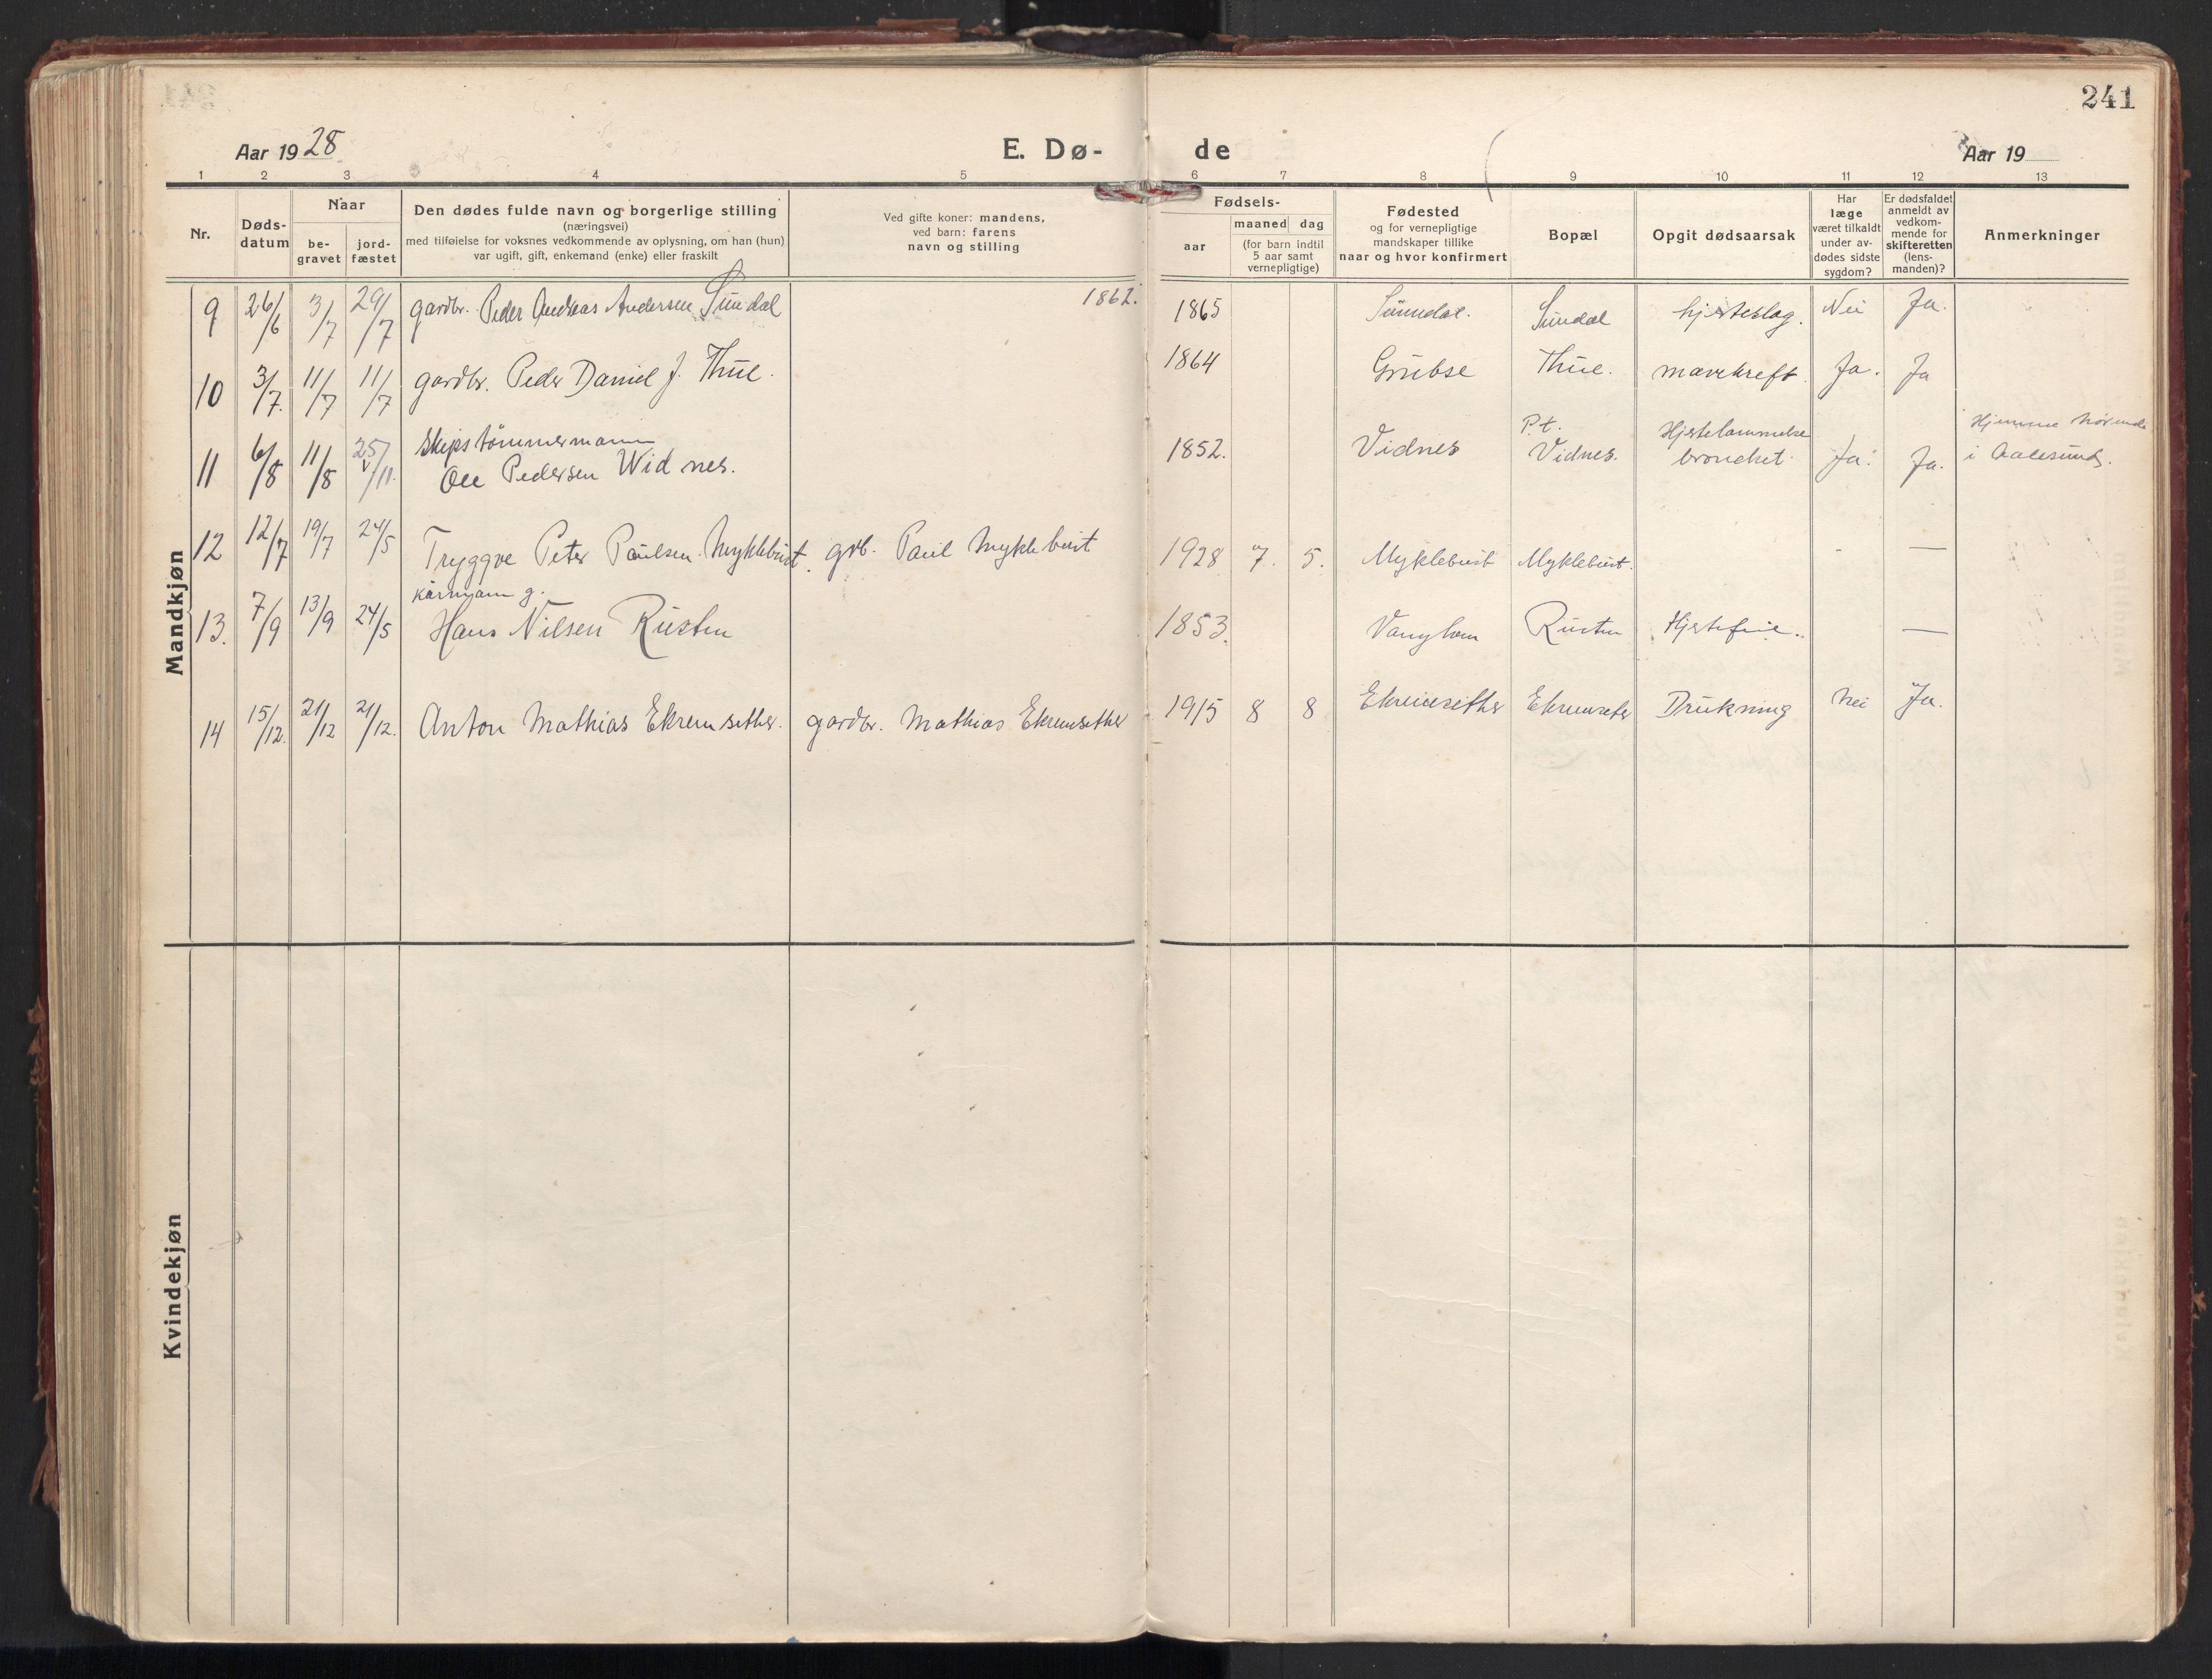 241
Aar 1928
E. Dø-
de
Aar 19
1 2 3 4 5 6 7 8 9 10 11 12 13
Nr.
Døds-
datum
Naar
be-
gravet
jord-
fæstet
Den dødes fulde navn og borgerlige stilling
(næringsvei)
med tilføielse for voksnes vedkommende av oplysning, om han (hun)
var ugift, gift, enkemand (enke) eller fraskilt
Ved gifte koner: mandens,
ved barn: farens
navn og stilling
Fødsels-
aar
maaned dag
(for barn indtil
5 aar samt
vernepligtige)
Fødested
og for vernepligtige
mandskaper tillike
naar og hvor konfirmert
Bopæl
Opgit dødsaarsak
Har
læge
været tilkaldt
under av-
dødes sidste
sygdom?
Er dødsfaldet
anmeldt av
vedkom-
mende for
skifteretten
(lens-
manden)?
Anmerkninger
Mandkjøn
9 26/6 3/7 29/7 gardbr. Peder Andreas Andersen Sundal 1862. 1865 Sunndal. Sundal hjerteslag. Nei Ja.
10 3/7. 11/7 11/7 gardbr. Peder Daniel J. Thue. 1864 Grubse Thue. mavekreft. Ja. Ja
11 6/8 11/8 25/11. Skipstømmermann
Ole Pedersen Widnes. 1852. Vidnes P.t.
Vidnes. Hjertelammelse
bronchet. Ja. Ja. Hjemmehørende
i Aalesund.
12 12/7 19/7 24/5 Tryggve Peter Paulsen Myklebust. grb. Paul Myklebust 1928 7. 5. Myklebust Myklebust. - —
13. 7/9 13/9 24/5 kårmann g.
Hans Nilsen Rusten 1853. Rusten Hjertefeil.. —
14 15/12. 21/12 21/12. Anton Mathias Ekremsether. gardbr. Mathias Ekremsether 1915 8 8 Ekremsether Ekremseter Drukning Nei Ja.
Kvindekjøn